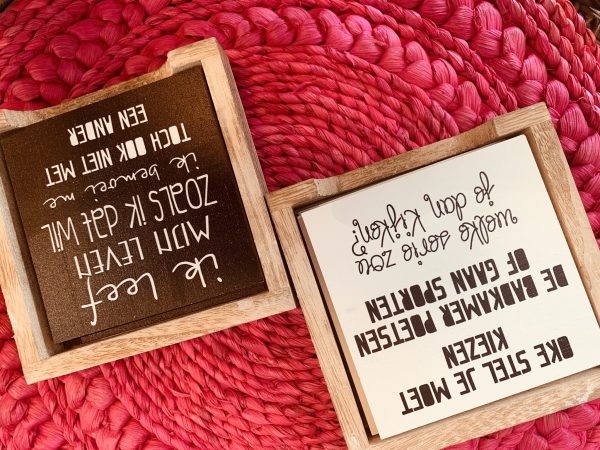 ik leef
MIJN LEVEN
ZOALS IK dAT WIL
ik bemoei me
TOCH OOK NIET MET
EEN ANDER
OKE STEL JE MOET
KIEZEN
DE BADKAMER POETSEN
OF GAAN SPORTEN
welke serie zou
jo dan kijken?